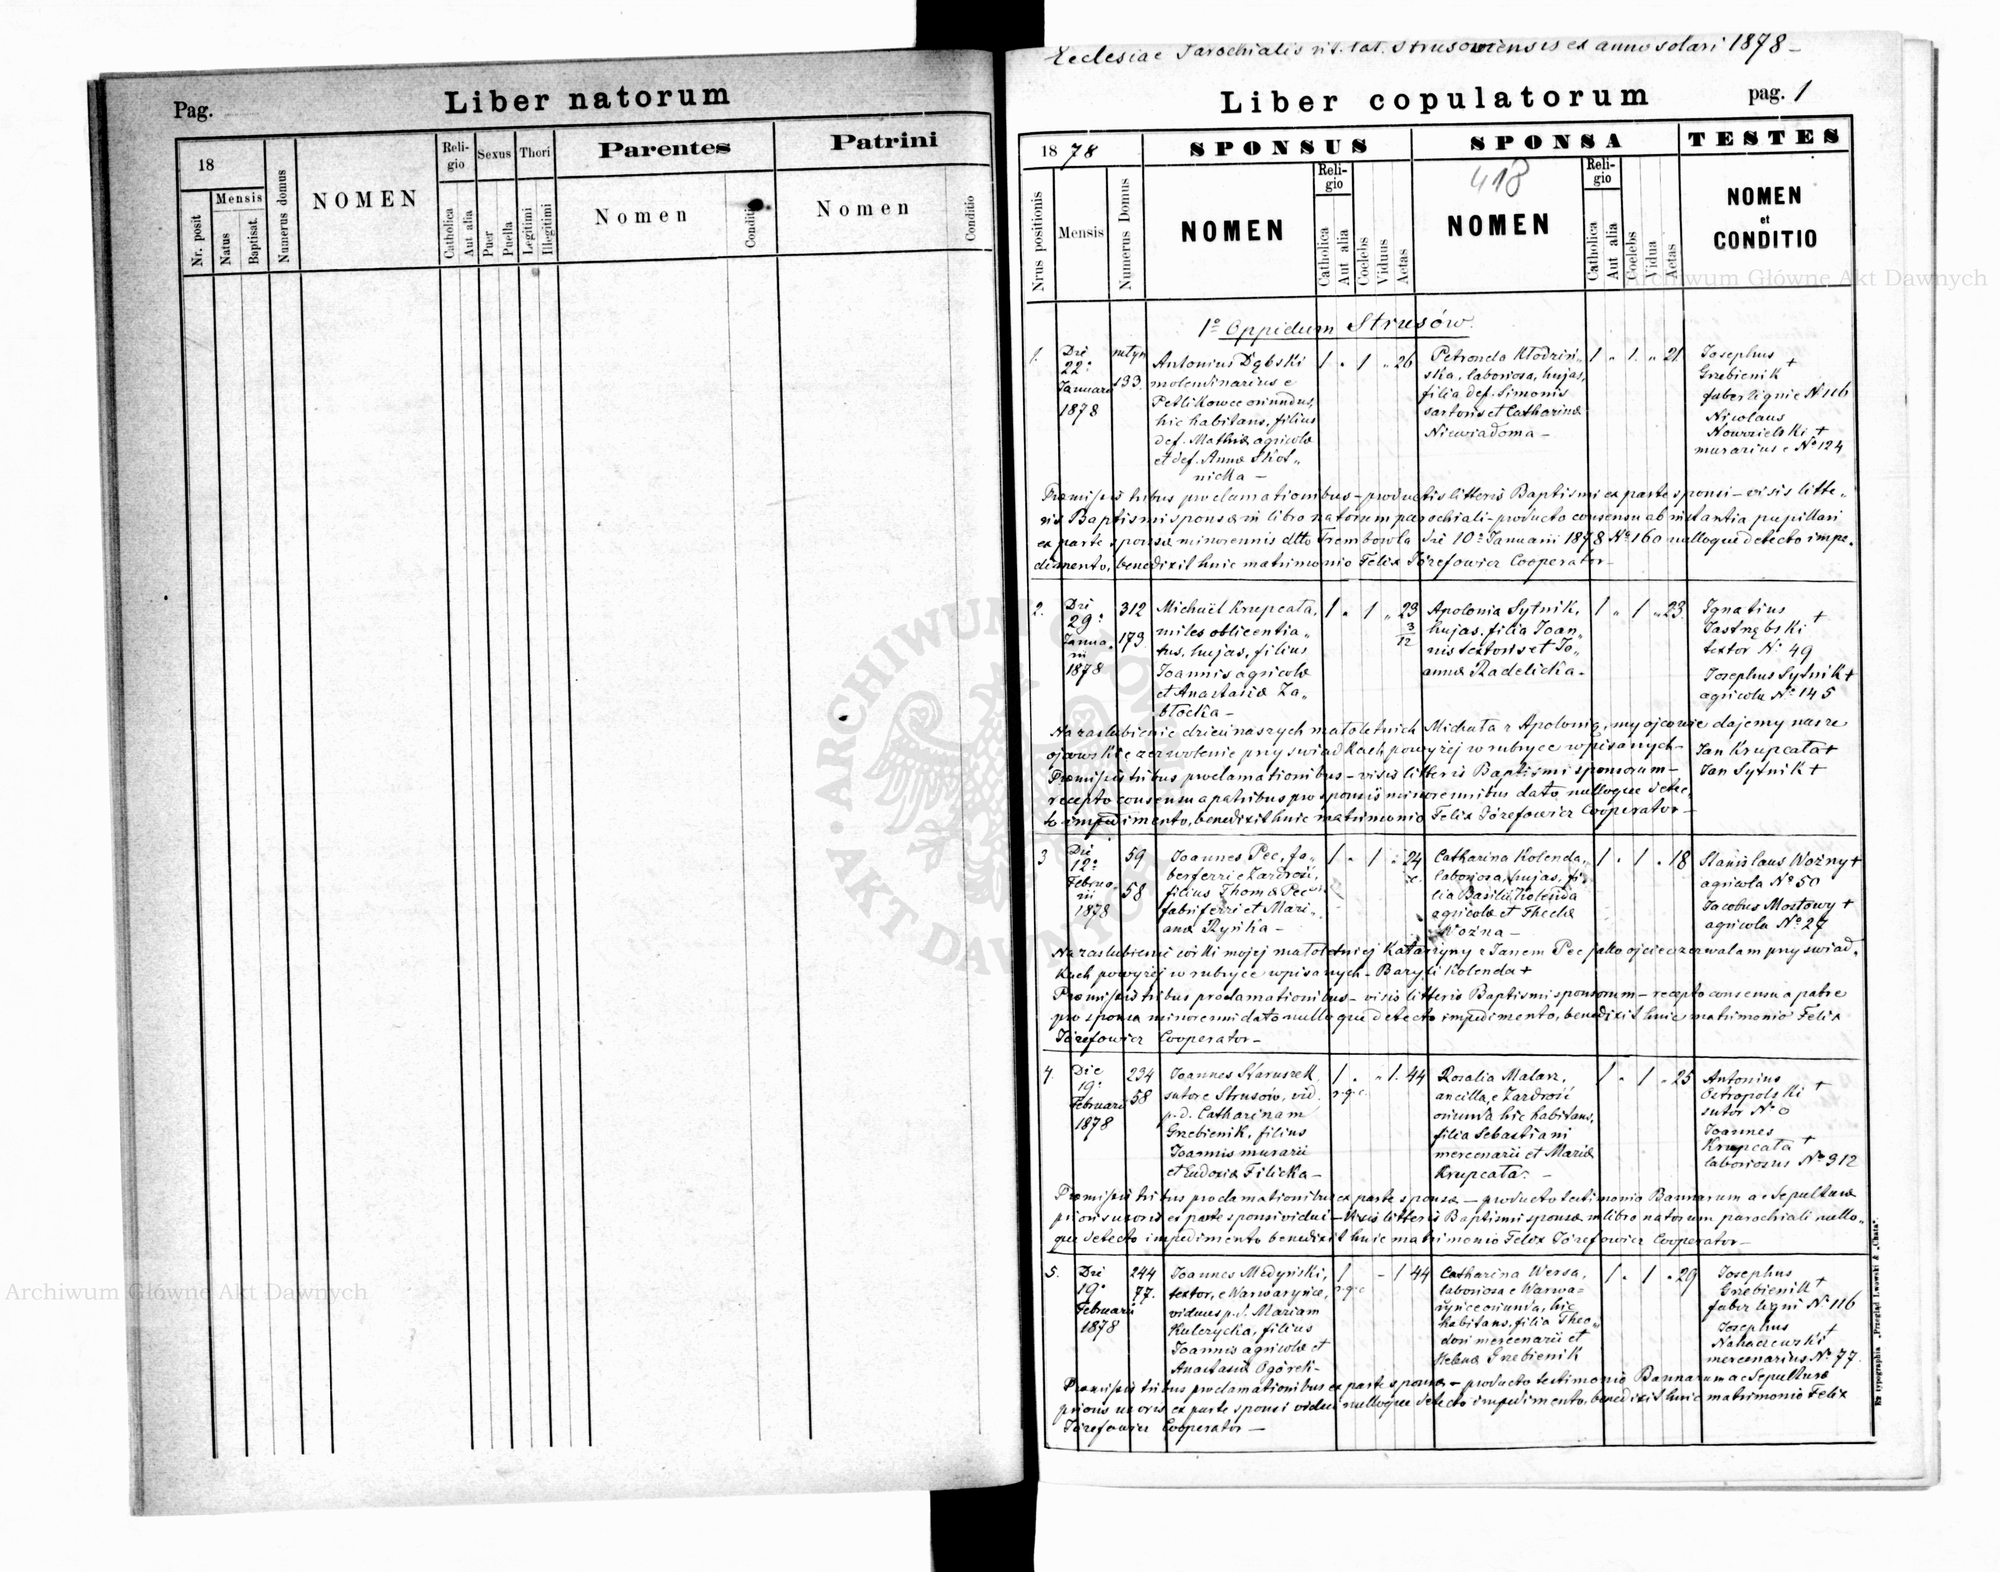 Pag.
Liber natorum
18
Nr. posit
Mensis
Natus
Baptisat.
Numerus domus
NOMEN
Reli-
gio
Catholica
Aut alia
Sexus
Puer
Puella
Thori
Legitimi
Illegitimi
Parentes
Nomen
Conditio
Patrini
Nomen
Conditio
Ecclesiae Parochialis rit. lat. Strusoviensis ex anno solari 1878 –
Liber copulatorum
pag. 1
18 78
Nrus positionis
Mensis
Numerus Domus
SPONSUS
NOMEN
Reli-
gio
Catholica
Aut alia
Coelebs
Viduus
Aetas
SPONSA
418
NOMEN
Reli-
gio
Catholica
Aut alia
Coelebs
Vidua
Aetas
TESTES
NOMEN
et
CONDITIO
1º Oppidum Strusów.
1.
Die
22ª
Januarii
1878
młyn
133.
Antonius Dębski
molendinarius e
Petlikowce oriundus,
hic habitans, filius
def. Mathiæ agricolæ
et def. Annæ Skot„
nicka –
1 „ 1 „ 26
Petronela Kłodziń„
ska, laboriosa, hujas,
filia def. Simonis
sartoris et Catharinæ
Niewiadoma –
1 „ 1. „ 21
Josephus +
Grzebienik
faber lignic Nº 116
Nicolaus
Nowosielski +
murarius e Nº 124
Præmissis tribus proclamationibus – productis litteris Baptismi ex parte sponsi – visis litte„
ris Baptismi sponsæ in libro natorum parochiali – producto consensu ab instantia pupillari
ex parte sponsæ minorennis dtto Trembowla die 10ª Januarii 1878 Nº 160 nulloque detecto impe„
dimento, benedixit huic matrimonio Felix Józefowicz Cooperator –
2.
Die
29ª
Janua„
rii
1878
312
173
Michaël Krupcała,
miles ob licentia„
tus, hujas, filius
Joannis agricolæ
et Anastasiæ Za„
błocka –
1 „ 1 „ 23
3
12
Apolonia Sytnik,
hujas, filia Joan„
nis textoris et Jo„
annæ Radelicka –
1 „ 1 „ 23.
Ignatius +
Jastrzębski
textor Nº 49
Josephus Sytnik +
agricola Nº 145
Na zaślubienie dzieci naszych małoletnich Michała z Apolonią, my ojcowie dajemy nasze
ojcowskie zezwolenie przy świadkach powyżej w rubryce wpisanych –
Jan Krupcała +
Jan Sytnik +
Præmissis tribus proclamationibus – visis litteris Baptismi sponsorum –
recepto consensu a patribus pro sponsis minorennibus dato, nulloque detec„
to impedimento, benedixit huic matrimonio Felix Józefowicz Cooperator –
3
Die
12ª
Februa„
rii
1878
59
58
Joannes Pec, fa„
ber ferri e Zazdrość,
filius Thomæ Pec
fabri ferri et Mari„
annæ Ryńka –
1 „ 1 „ 24
Catharina Kolenda,
laboriosa, hujas, fi„
lia Basilii Kolenda
agricolæ et Theclæ
Woźna –
1 „ 1 „ 18
Stanislaus Woźny +
agricola Nº 50
Jacobus Mostowy +
agricola Nº 27
Na zaślubienie córki mojej małoletniej Katarzyny z Janem Pec jako ojciec zezwalam przy świad„
kach powyżej w rubryce wpisanych – Bazyli Kolenda +
Præmissis tribus proclamationibus – visis litteris Baptismi sponsorum – recepto consensu a patre
pro sponsa minorenni dato nulloque detecto impedimento, benedixit huic matrimonio Felix
Józefowicz Cooperator –
4.
Die
19ª
Februarii
1878
234
58
Joannes Staruszek
sutor e Strusów, vid.
p. d. Catharinam
Grzebienik, filius
Joannis murarii
et Eudoxiæ Filicka –
1 „ „ 1. 44
r. g. c.
Rosalia Malarz,
ancilla, e Zazdrość
oriunda hic habitans,
filia Sebastiani
mercenarii et Mariæ
Krupcała –
1 „ 1 „ 25
Antonius +
Ostropolski
sutor Nº 0
Joannes
Krupcała +
laboriosus Nº 312
Præmissis tribus proclamationibus ex parte sponsæ – producto testimonio Bannorum ac Sepulturæ
prioris uxoris ex parte sponsi vidui – Visis litteris Baptismi sponsæ in libro natorum parochiali nullo„
que detecto impedimento benedixit huic matrimonio Felix Józefowicz Cooperator –
5.
Die
19ª
Februarii
1878
244
77.
Joannes Medyński,
textor, e Warwaryńce,
viduus p. d. Mariam
Kulczycka, filius
Joannis agricolæ et
Anastasiæ Ogórek –
1 – 1 44
r. g. c.
Catharina Wersa,
laboriosa e Warwa=
ryńce oriunda, hic
habitans, filia Theo„
dori mercenarii et
Helenæ Grzebienik
1 „ 1 „ 29
Josephus
Grzebienik +
faber ligni Nº 116
Josephus
Nahaczewski +
mercenarius Nº 77
Præmissis tribus proclamationibus ex parte sponsæ – producto testimonio Bannorum ac Sepulturæ
prioris uxoris ex parte sponsi vidui nulloque detecto impedimento, benedixit huic matrimonio Felix
Józefowicz Cooperator –
Ex typographia „Przegląd Lwowski & „Chata".
Archiwum Główne Akt Dawnych
Archiwum Główne Akt Dawnych
ARCHIWUM GŁÓWNE
AKT DAWNYCH